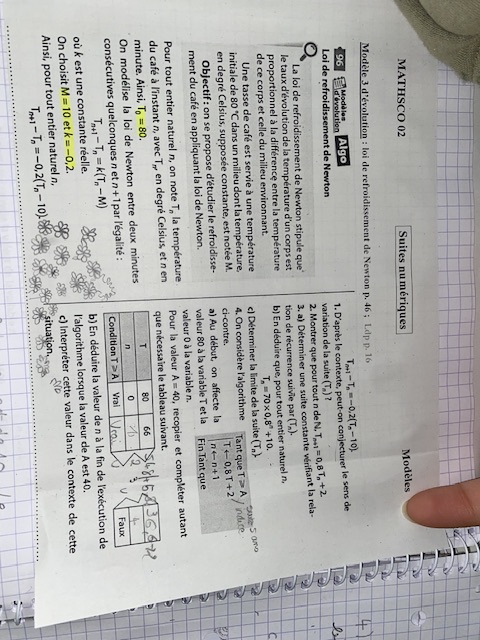 MATHSCO 02
Suites numériques
Modèles
Modèle 3 d'évolution : loi de refroidissement de Newton p. 46 ; Ldp p. 16
95 Modèles d'évolution Algo
Loi de refroidissement de Newton
La loi de refroidissement de Newton stipule que
le taux d'évolution de la température d'un corps est
proportionnel à la différence entre la température
de ce corps et celle du milieu environnant.
Une tasse de café est servie à une température
initiale de 80 °C dans un milieu dont la température,
en degré Celsius, supposée constante, est notée M.
Objectif : on se propose d'étudier le refroidisse-
ment du café en appliquant la loi de Newton.
Pour tout entier naturel n, on note Tₙ la température
du café à l'instant n, avec Tₙ en degré Celsius, et n en
minute. Ainsi, T₀ = 80.
On modélise la loi de Newton entre deux minutes
consécutives quelconques n et n + 1 par l'égalité :
Tₙ₊₁ – Tₙ = k(Tₙ – M)
où k est une constante réelle.
On choisit M = 10 et k = –0,2.
Ainsi, pour tout entier naturel n,
Tₙ₊₁ – Tₙ = –0,2(Tₙ – 10).
Tₙ₊₁ – Tₙ = –0,2(Tₙ – 10).
1. D'après le contexte, peut-on conjecturer le sens de
variation de la suite (Tₙ) ?
2. Montrer que pour tout n de ℕ, Tₙ₊₁ = 0,8 Tₙ + 2.
3. a) Déterminer une suite constante vérifiant la rela-
tion de récurrence suivie par (Tₙ).
b) En déduire que, pour tout entier naturel n,
Tₙ = 70 × 0,8ⁿ + 10.
c) Déterminer la limite de la suite (Tₙ).
4. On considère l'algorithme
ci-contre.
Tant que T ⩾ A
T ← 0,8 T + 2
n ← n + 1
Fin Tant que
a) Au début, on affecte la
valeur 80 à la variable T et la
valeur 0 à la variable n.
Pour la valeur A = 40, recopier et compléter autant
que nécessaire le tableau suivant.
T 80 66
n 0 1 4
Condition T ⩾ A Vrai Vrai V V Faux
b) En déduire la valeur de n à la fin de l'exécution de
l'algorithme lorsque la valeur de A est 40.
c) Interpréter cette valeur dans le contexte de cette
situation.